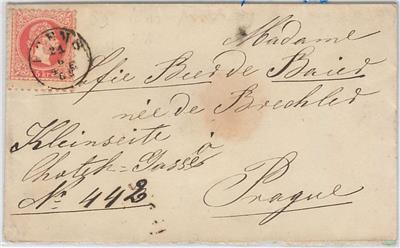 KREMS
24
Madame
Sofie Bier de Baier
née de Brechler
Kleinseite
Chotek=Gasse
à
No. 442
Prague